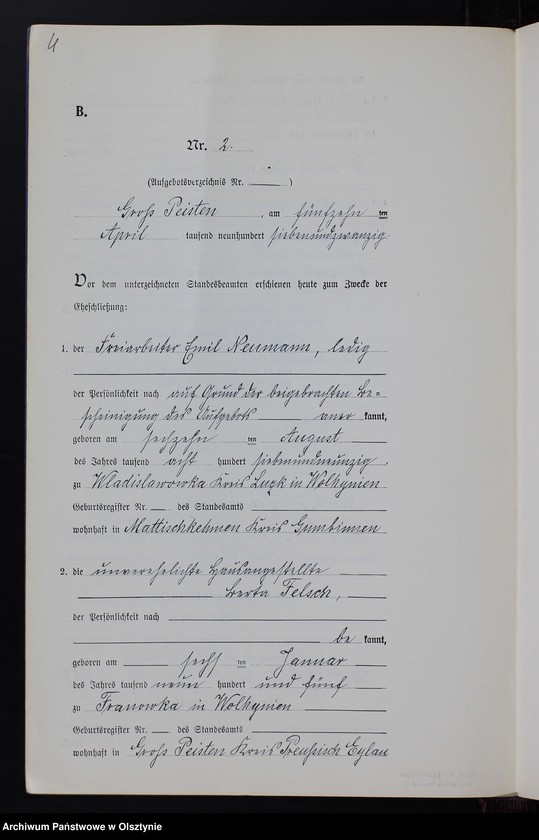 4
B.
Nr. 2.
(Aufgebotsverzeichnis Nr. )
Groß Peisten , am fünfzehn ten
April tausend neunhundert siebenundzwanzig
Vor dem unterzeichneten Standesbeamten erschienen heute zum Zwecke der
Eheschließung:
1. der Freiarbeiter Emil Neumann, ledig
der Persönlichkeit nach auf Grund der beigebrachten Be=
scheinigung des Aufgebots aner kannt,
geboren am sechzehn ten August
des Jahres tausend acht hundert siebenundneunzig,
zu Wladislawowka Kreis Luzk in Wolhynien
Geburtsregister Nr. des Standesamts
wohnhaft in Mattischkehmen Kreis Gumbinnen
2. die unverehelichte Hausangestellte
Berta Felsch,
der Persönlichkeit nach
be kannt,
geboren am sechs ten Januar
des Jahres tausend neun hundert und fünf
zu Franowka in Wolhynien
Geburtsregister Nr. des Standesamts
wohnhaft in Groß Peisten Kreis Preußisch Eylau
Archiwum Państwowe w Olsztynie